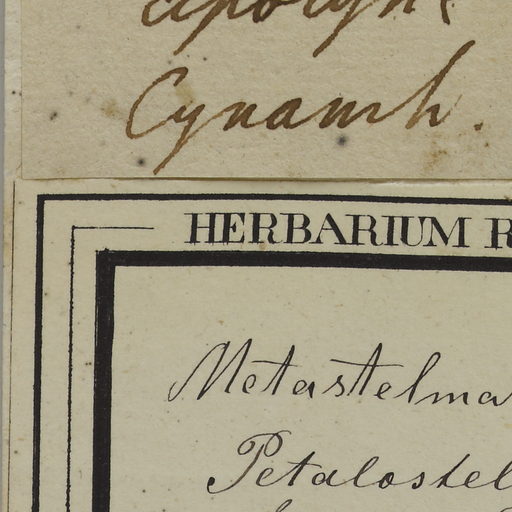 Cynanch.
HERBARIUM R
Metastelma
Petalostel